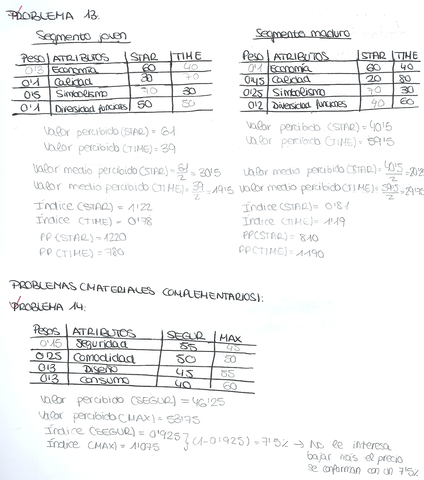 PROBLEMA 13:
Segmento joven
Peso ATRIBUTOS STAR TIME
0'3 Economía 60 40
0'1 Calidad 30 70
0'5 Simbolismo 70 30
0'1 Diversidad funciones 50 50
Valor percibido (STAR) = 61
Valor percibido (TIME) = 39
Valor medio percibido (STAR) = 61/2 = 30'5
Valor medio percibido (TIME) = 39/2 = 19'5
Índice (STAR) = 1'22
Índice (TIME) = 0'78
PP (STAR) = 1220
PP (TIME) = 780
Segmento maduro
Peso ATRIBUTOS STAR TIME
0'1 Economía 60 40
0'45 Calidad 20 80
0'25 Simbolismo 70 30
0'2 Diversidad funciones 40 60
Valor percibido (STAR) = 40'5
Valor percibido (TIME) = 59'5
Valor medio percibido (STAR) = 40'5/2 =
Valor medio percibido (TIME) = 59'5/2 =
Índice (STAR) = 0'81
Índice (TIME) = 1'19
PP(STAR) = 810
PP(TIME) = 1190
PROBLEMAS (MATERIALES COMPLEMENTARIOS):
PROBLEMA 14:
Pesos ATRIBUTOS SEGUR MAX
0'15 Seguridad 55 45
0'25 Comodidad 50 50
0'3 Diseño 45 55
0'3 Consumo 40 60
Valor percibido (SEGUR) = 46'25
Valor percibido (MAX) = 53'75
Índice (SEGUR) = 0'925
Índice (MAX) = 1'075
} (1-0'925) = 7'5% → No le interesa
bajar más el precio
se conforman con un 7'5%